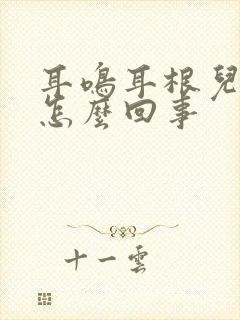 耳鳴耳根兒
怎麼回事
十一雲